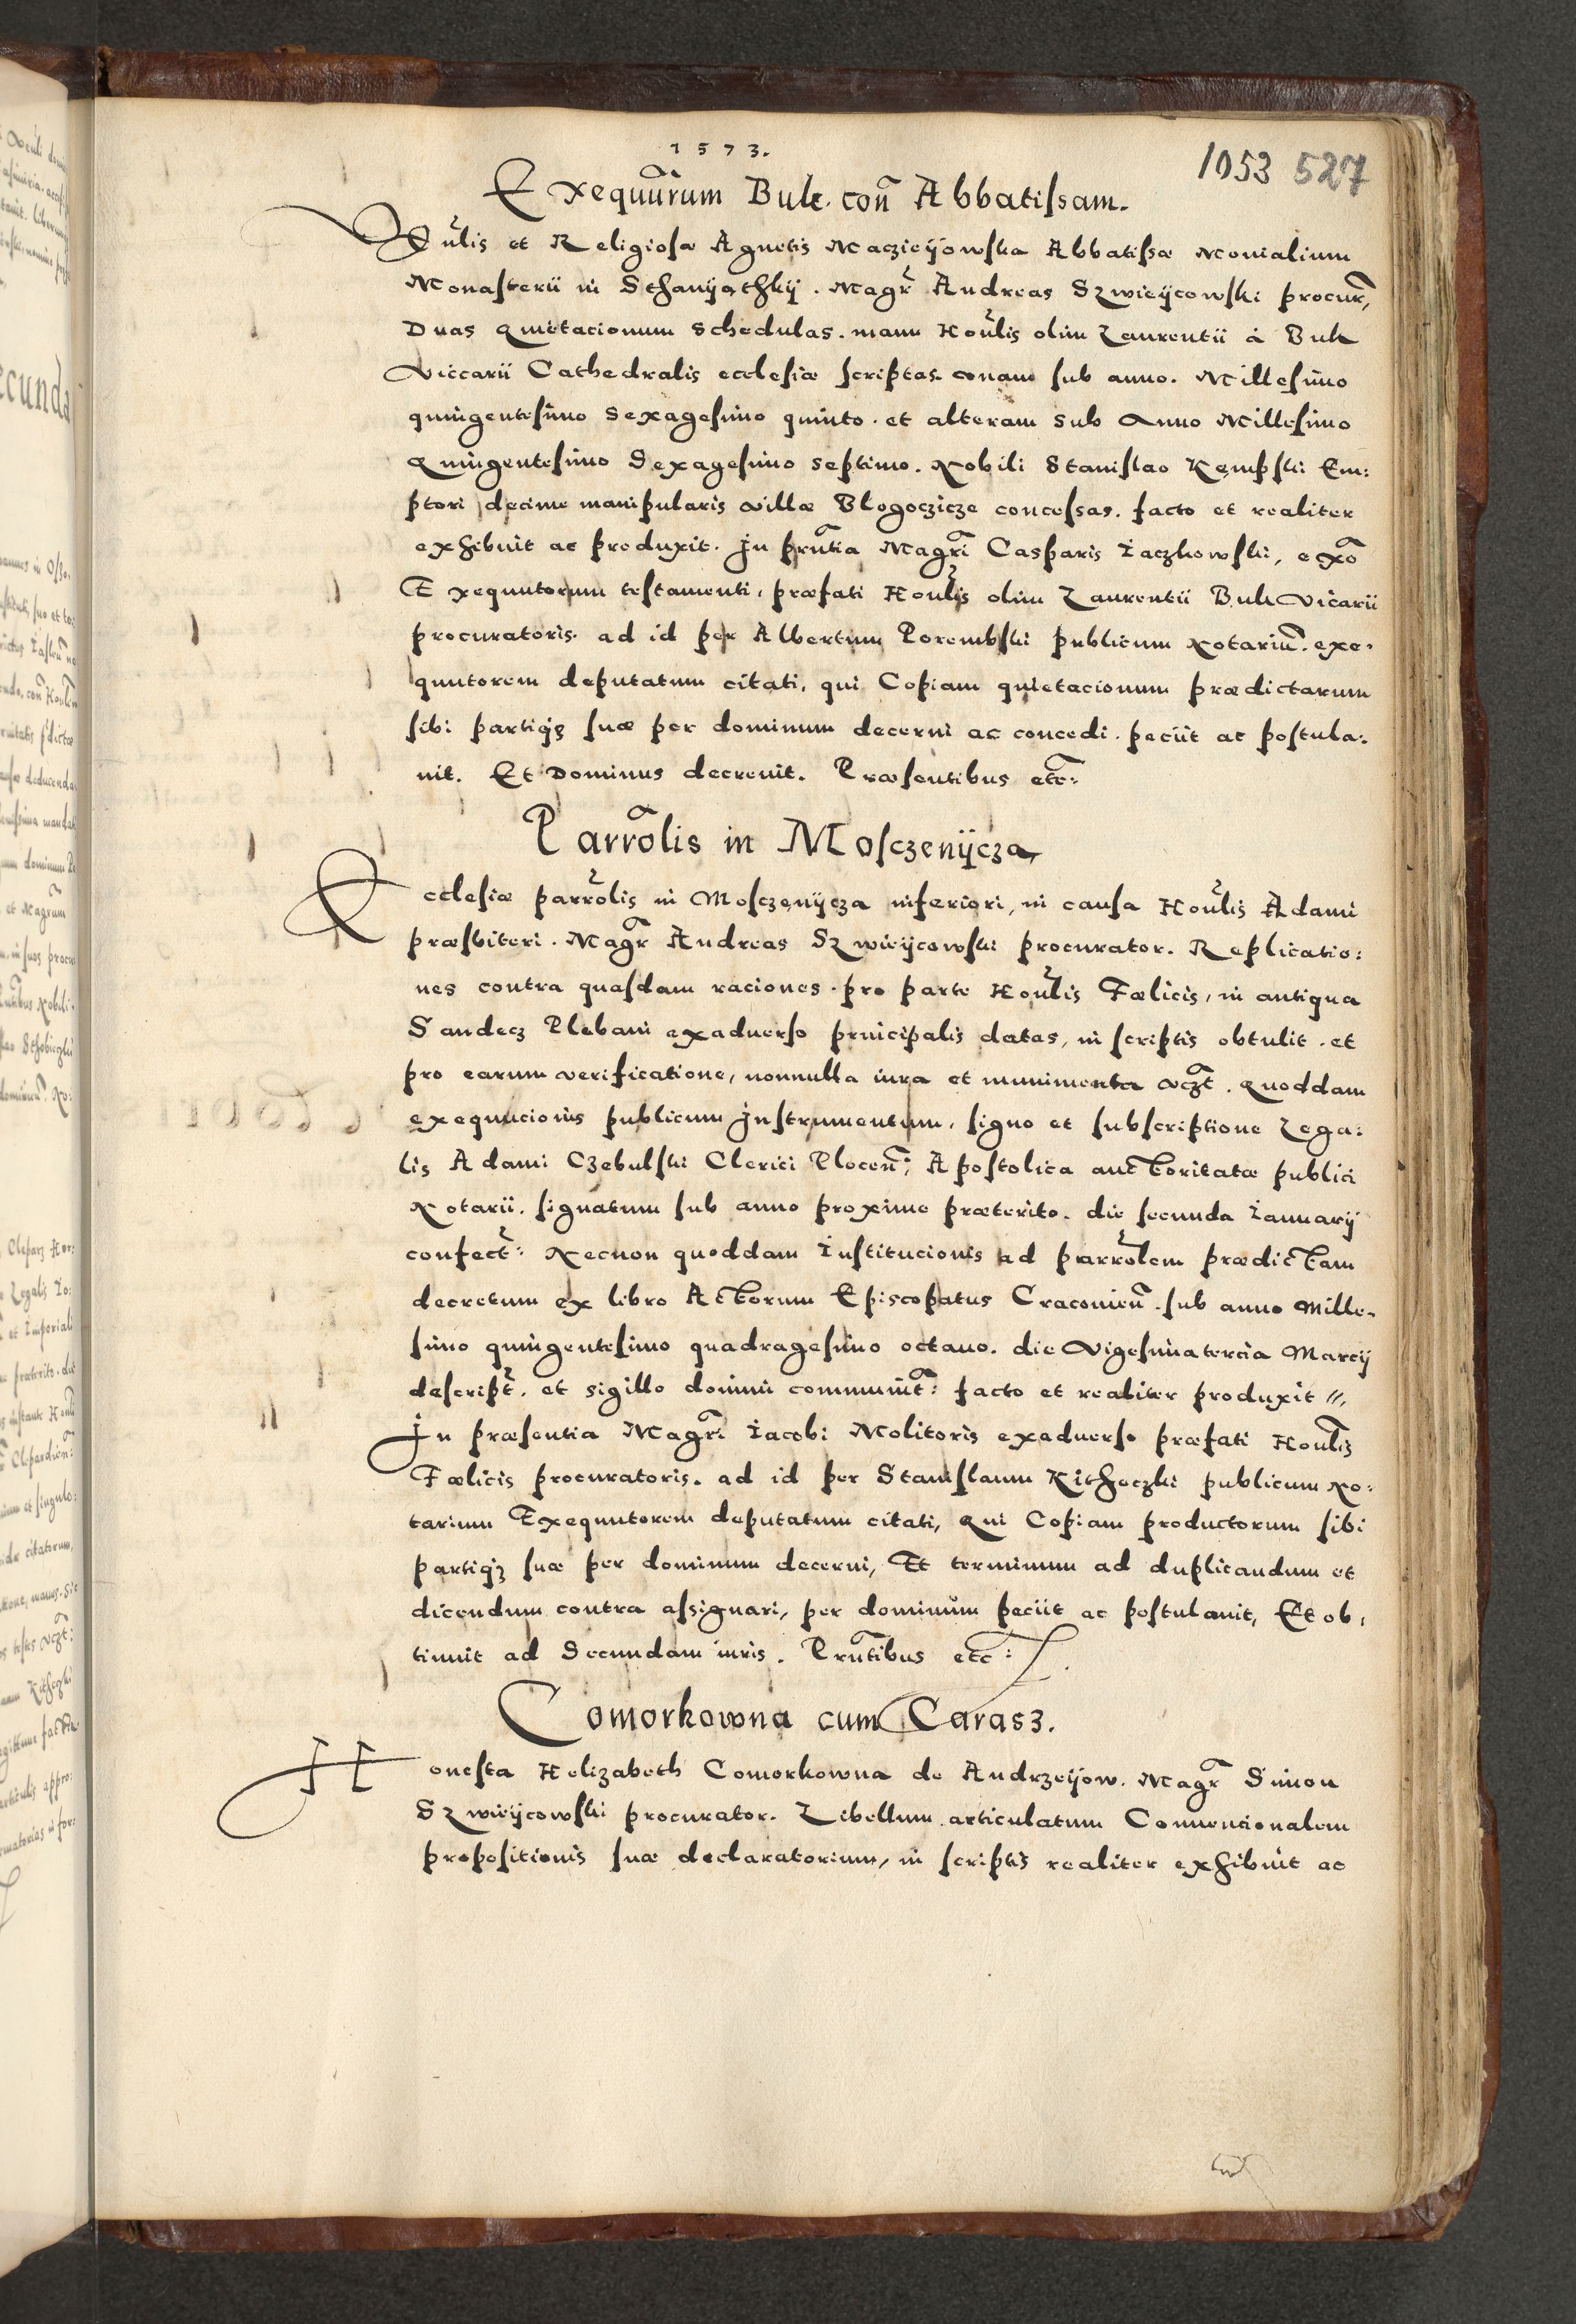 1573.
1053 527
Exequūrum Buk. con̄ Abbatissam.
Vn̄lis et Religiosæ Agnetis Maczieijowska Abbatissæ Monialium
Monasterii in Sthanijąthkij. Magr̄ Andreas Szwieijcowski procur̄,
Duas Quietacionum Schedulas. manu Hon̄lis olim Laurentii à Buk
Viccarii Cathedralis ecclesiæ scriptas. vnam sub anno. Millesimo
quingentesimo sexagesimo quinto. et alteram sub Anno Millesimo
Quingentesimo Sexagesimo septimo. Nobili Stanislao Kempski Em:
ptori decime manipularis villæ Blogoczicze concessas. facto et realiter
exhibuit ac produxit. In prn̄tia Magrī Casparis Iaczkowski, ex ōo
Exequutorum testamenti, præfati Hon̄lis olim Laurentii Buk Vicarii
procuratoris. ad id per Albertum Porembski publicum Notariū. exe.
quutorem deputatum citati, qui Copiam quietacionum prædictarum
sibi partiqȝ suæ per dominum decerni ac concedi. peciit ac postula:
uit. Et Dominus decreuit. Præsentibus etc̄:
Parrōlis in Mosczenijcza
Ecclesiæ parrōlis in Mosczenijcza inferiori, in causa Hon̄lis Adami
præsbiteri. Magr̄ Andreas Szwieijcowski procurator. Replicatio:
nes contra quasdam raciones. pro parte Hon̄lis Fœlicis, in antiqua
Sandecz Plebani exaduerso principalis datas, in scriptis obtulit. et
pro earum verificatione, nonnulla iura et munimenta vcȝt̄. Quoddam
exequucionis publicum Instrumentum, signo et subscriptione Lega:
lis Adami Czebulski Clerici Plocen̄: Apostolica auctoritatæ publici
Notarii. signatum sub anno proxime præterito. die secunda Ianuarij
confect̄: Necnon quoddam Institucionis ad parrōlem prædictam
decretum ex libro Actorum Episcopatus Cracouien̄. sub anno Mille-
simo quingentesimo quadragesimo octauo. die Vigesimatercia Marcij
descript̄. et sigillo domini communit̄: facto et realiter produxit //,
In præsentia Magrī Iacobi Molitoris exaduerso præfati Hon̄lis
Fœlicis procuratoris. ad id per Stanislaum Kitheczki publicum No:
tarium Exequutorem deputatum citati, Qui Copiam productorum sibi
partiqȝ suæ per dominum decerni, Et terminum ad duplicandum et
dicendum contra assignari, per dominum peciit ac postulauit, Et ob,
tinuit ad Secundam iuris. Prn̄tibus etc̄:
Comorkowna cum Carasz.
Honesta Helizabeth Comorkowna de Andrzeijow. Magr̄ Simon
Szwieijcowski procurator. Libellum articulatum Conuencionalem
propositionis suæ declaratorium, in scriptis realiter exhibuit ac